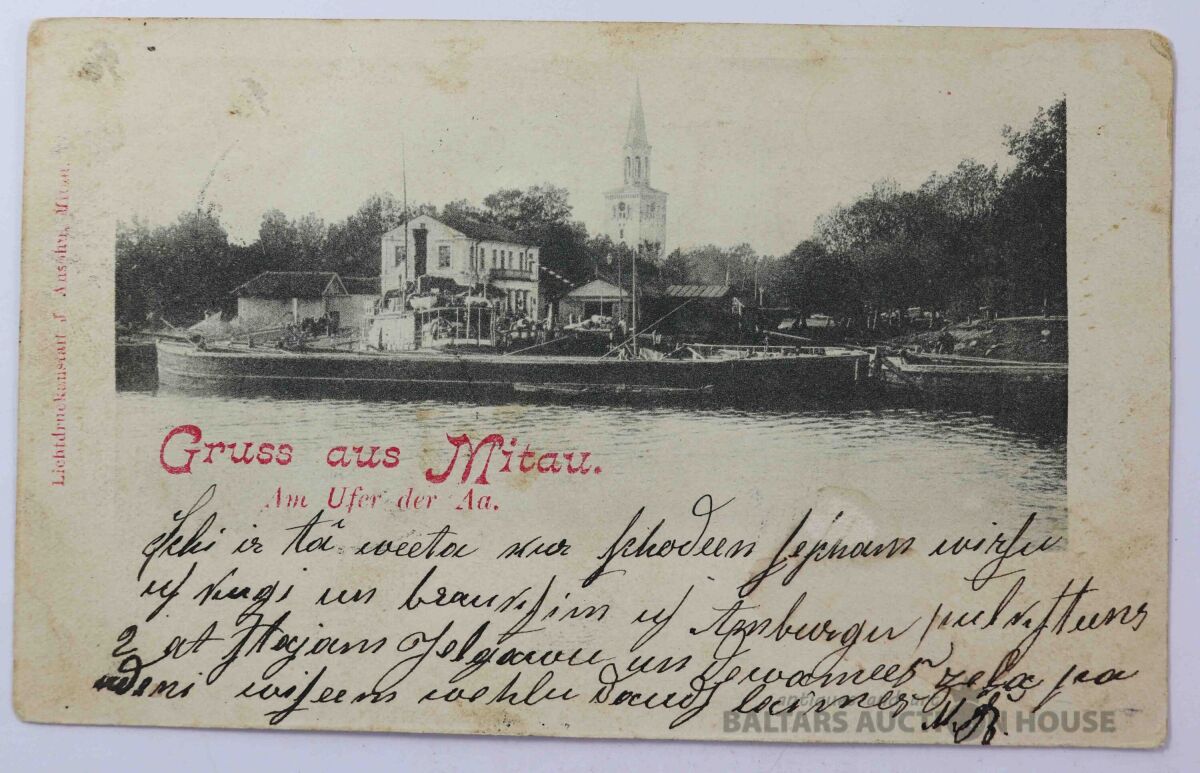 Lichtdruckanstalt J. Ansohn, Mitau.
Gruss aus Mitau.
Am Ufer der Aa.
Schi ir tâ weeta kur schodeen sehscham wirsu
us kugi un brauksim us Amburgu pulkstens
2 at stajam Jelgawu un dewamees zelâ pa
udeni wiseem wehlu daudz laimes
M. R.
BALTARS AUCTION HOUSE